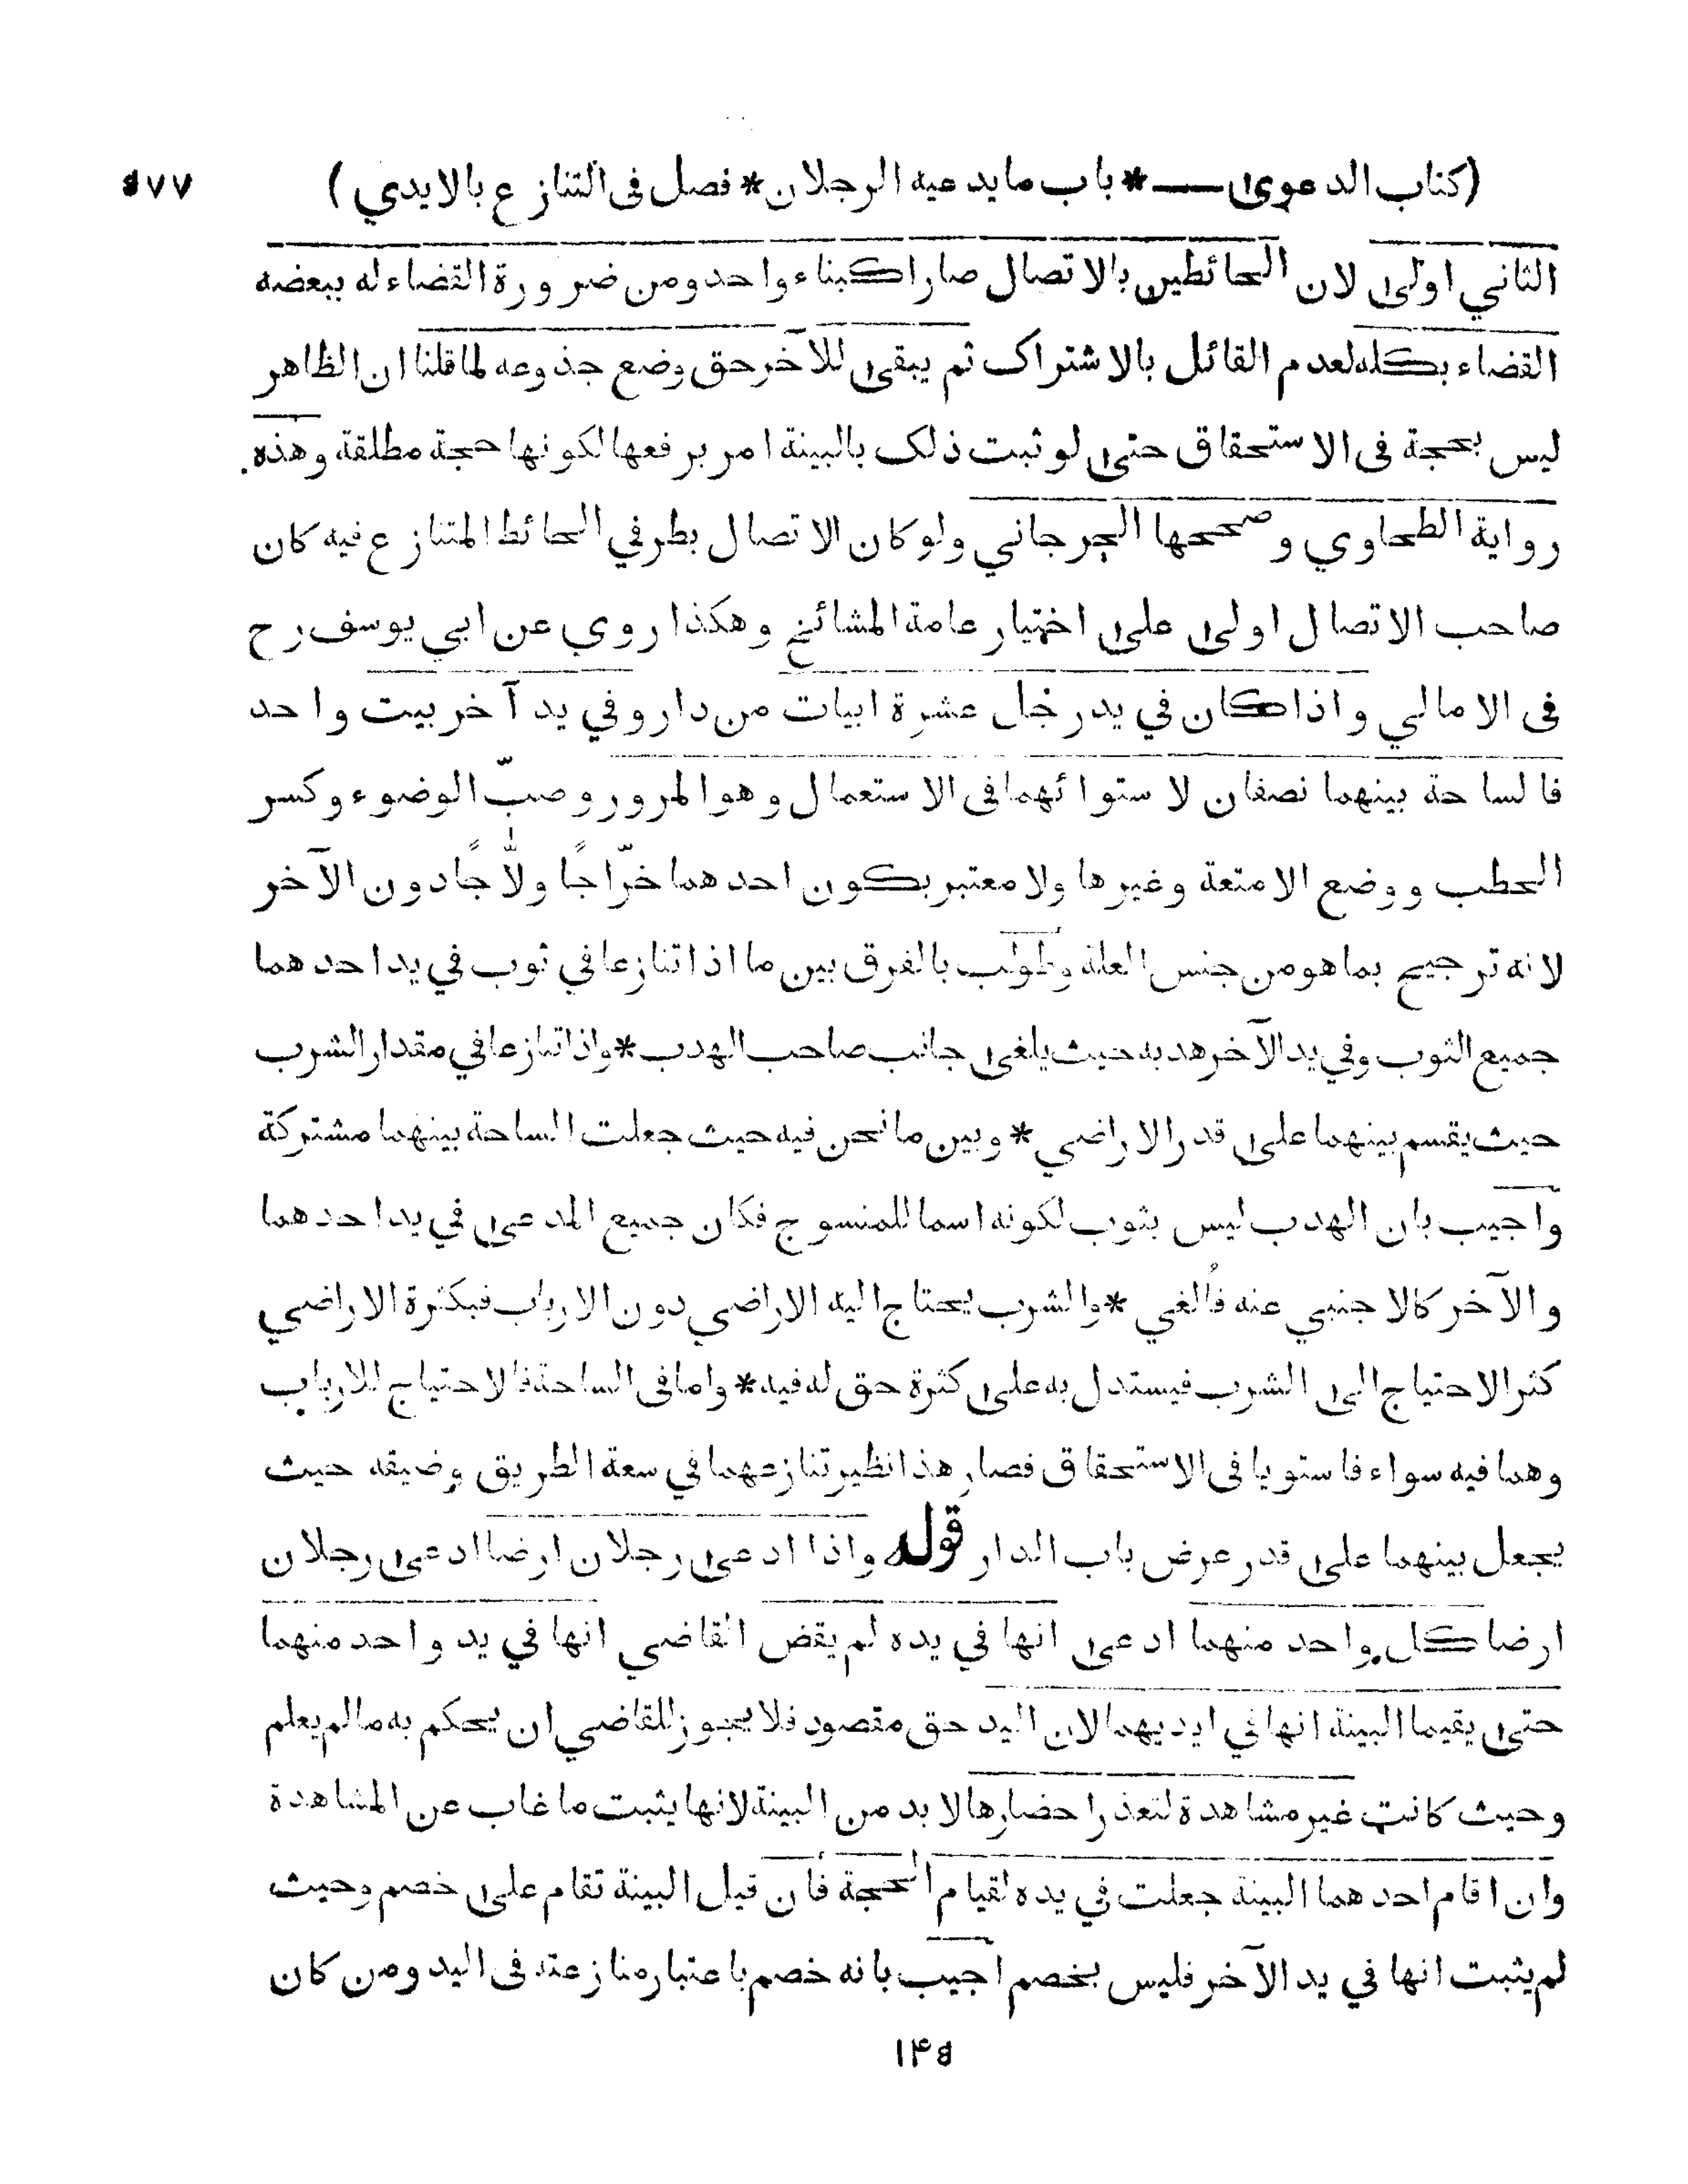 (كتاب الدعوى — * باب ما يدعيه الرجلان * فصل فى التنازع بالايدي) ٥٧٧
الثاني اولى لان الحائطين بالاتصال صارا كبناء واحد ومن ضرورة القضاء له ببعضه
القضاء بكله لعدم القائل بالاشتراك ثم يبقى للآخر حق وضع جذوعه لما قلنا ان الظاهر
ليس بحجة فى الاستحقاق حتى لو ثبت ذلك بالبينة امر برفعها لكونها حجة مطلقة وهذه
رواية الطحاوي وصححها الجرجاني ولو كان الاتصال بطرفي الحائط المتنازع فيه كان
صاحب الاتصال اولى على اختيار عامة المشائخ وهكذا روي عن ابي يوسف رح
فى الامالي واذا كان في يد رجل عشرة ابيات من دار وفي يد آخر بيت واحد
فالساحة بينهما نصفان لاستوائهما فى الاستعمال وهو المرور وصبّ الوضوء وكسر
الحطب ووضع الامتعة وغيرها ولا معتبر بكون احدهما خرّاجًا ولّاجًا دون الآخر
لانه ترجيح بما هو من جنس العلة وطولب بالفرق بين ما اذا تنازعا في ثوب في يد احدهما
جميع الثوب وفي يد الآخر هدبه حيث يلغى جانب صاحب الهدب * واذا تنازعا في مقدار الشرب
حيث يقسم بينهما على قدر الاراضي * وبين ما نحن فيه حيث جعلت الساحة بينهما مشتركة
واجيب بان الهدب ليس بثوب لكونه اسما للمنسوج فكان جميع المدعى في يد احدهما
والآخر كالاجنبي عنه فأُلغي * والشرب يحتاج اليه الاراضي دون الارباب فبكثرة الاراضي
كثر الاحتياج الى الشرب فيستدل به على كثرة حق له فيه * واما فى الساحة فالاحتياج للارباب
وهما فيه سواء فاستويا فى الاستحقاق فصار هذا نظير تنازعهما في سعة الطريق وضيقه حيث
يجعل بينهما على قدر عرض باب الدار قوله واذا ادعى رجلان ارضا ادعى رجلان
ارضا كل واحد منهما ادعى انها في يده لم يقض القاضي انها في يد واحد منهما
حتى يقيما البينة انها في ايديهما لان اليد حق مقصود فلا يجوز للقاضي ان يحكم به ما لم يعلم
وحيث كانت غير مشاهدة لتعذر احضارها لا بد من البينة لانها يثبت ما غاب عن المشاهدة
وان اقام احدهما البينة جعلت في يده لقيام الحجة فأن قيل البينة تقام على خصم وحيث
لم يثبت انها في يد الآخر فليس بخصم اجيب بانه خصم باعتبار منازعته فى اليد ومن كان
١٤٥